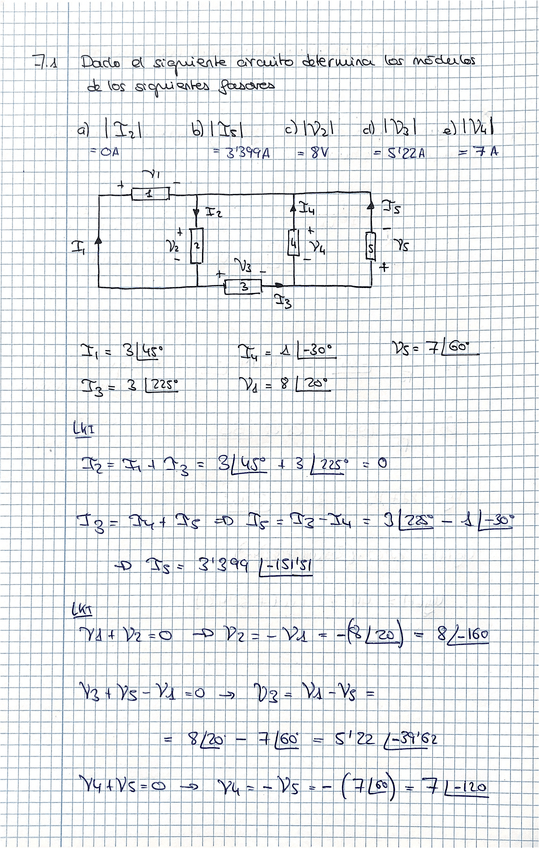 7.1 Dado el siguiente circuito determina los módulos
de los siguientes fasores
a) |I2| b) |I5| c) |V2| d) |V3| e) |V4|
= 0A = 3'399A = 8V = 5'22A = 7A
V1
+ 1 -
I1
I2
+ V2 - 2
I4
4 + V4 -
I5
5 - V5 +
V3
+ 3 -
I3
I1 = 3∠45° I4 = 1∠-30° V5 = 7∠60°
I3 = 3∠225° V1 = 8∠20°
LKI
I2 = I1 + I3 = 3∠45° + 3∠225° = 0
I3 = I4 + I5 ⇒ I5 = I3 - I4 = 3∠225° - 1∠-30°
⇒ I5 = 3'399∠-151'51
LKT
V1 + V2 = 0 → V2 = -V1 = -(8∠20) = 8∠-160
V3 + V5 - V1 = 0 → V3 = V1 - V5 =
= 8∠20° - 7∠60° = 5'22∠-39'62
V4 + V5 = 0 → V4 = -V5 = -(7∠60) = 7∠-120